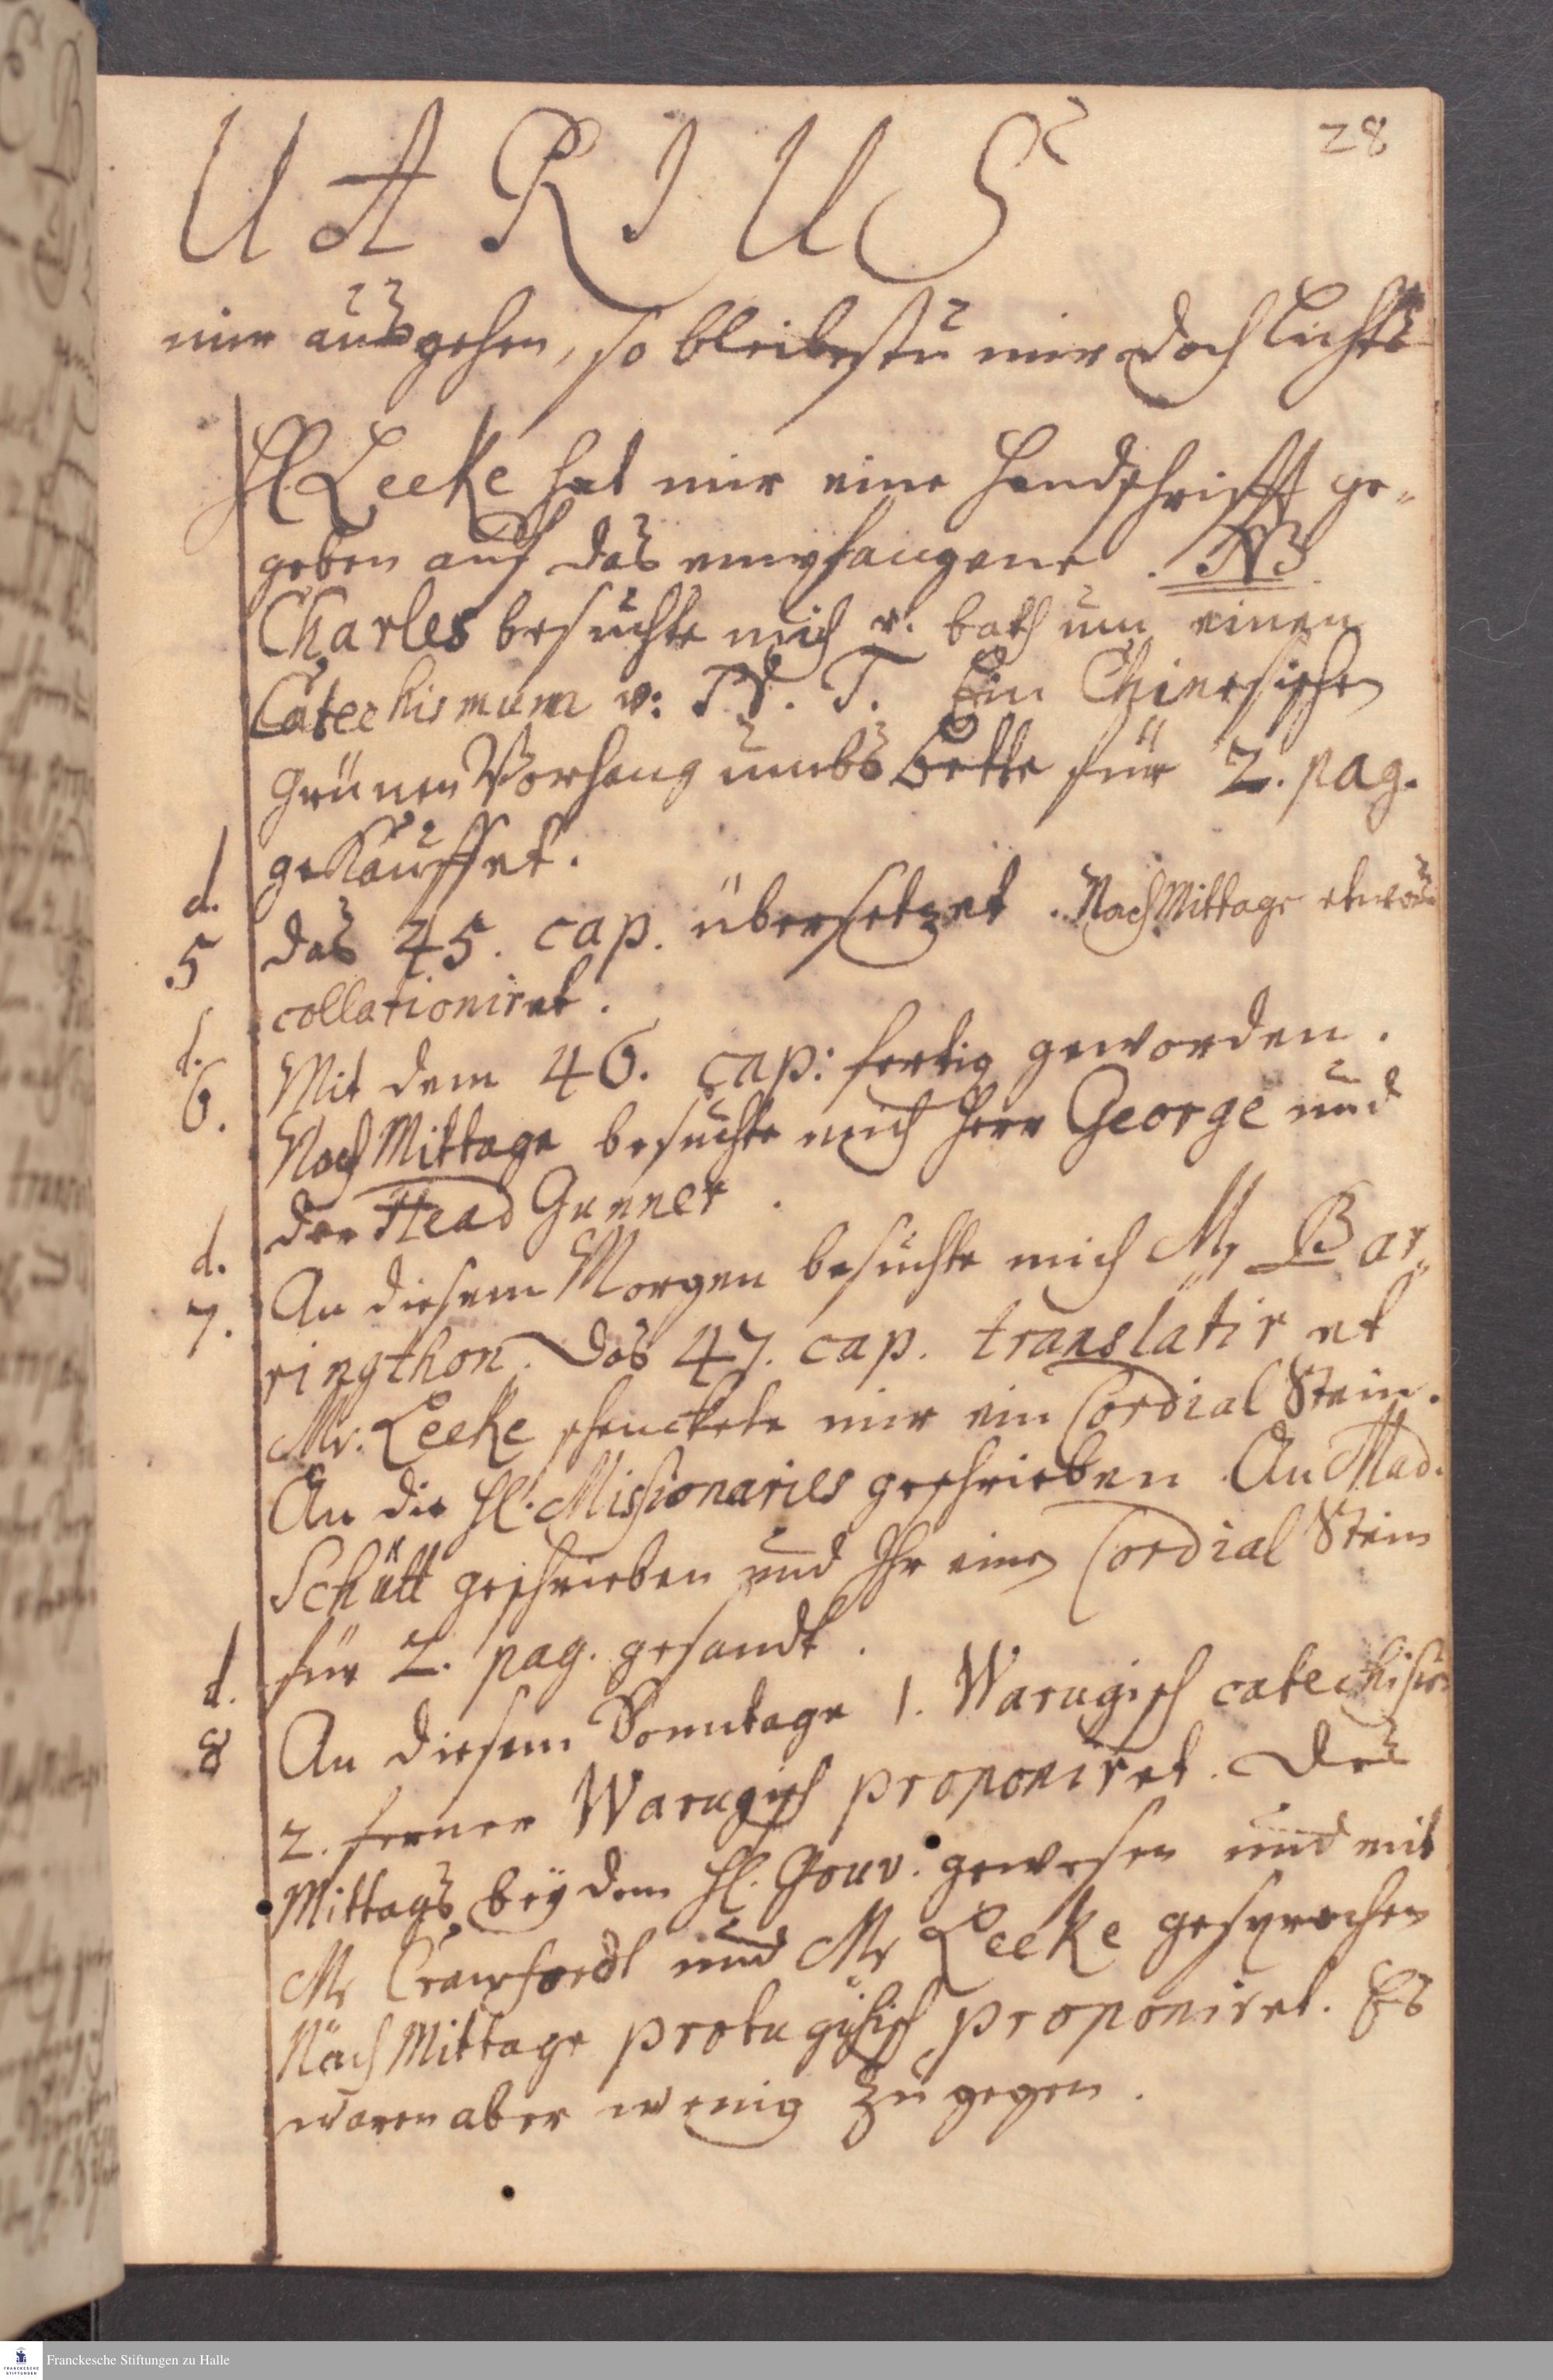 28
UARIUS
mir ausgehen, so bleibestu mir doch lichts
H. Leeke hat mir eine Handschrifft ge-
geben auf das empfangene. NB.
Charles besuchte mich v. bath um einen
Catechismum v: N. T. Ein Chinesischen
Grünen Vorhang umbs Bette für 2. pag.
gekauffet.
d.
5 das 45. cap. übersetzet. Nach Mittage etwas
collationiret.
d.
6. Mit dem 46. cap: fertig geworden.
Nach Mittage besuchte mich Herr George und
der Head Gunner.
d.
7. An diesem Morgen besuchte mich Mr Bar-
ringthon. Das 47. cap. translatiret
Mr. Leeke schenckete mir ein Cordial Stein.
An die H. Missionaries geschrieben. An Mad.
Schütt geschrieben und Ihr einen Cordial Stein
für 2. pag. gesandt.
d.
8 An diesem Sonntage 1. Warugisch
2. ferner Warugisch proponiret. Des
Mittags bey dem H. Gouv. gewesen und mit
Mr Crawfordt und Mr Leeke gesprochen
Nach Mittage proponiret. Es
waren aber wenig zu gegen.
Franckesche Stiftungen zu Halle